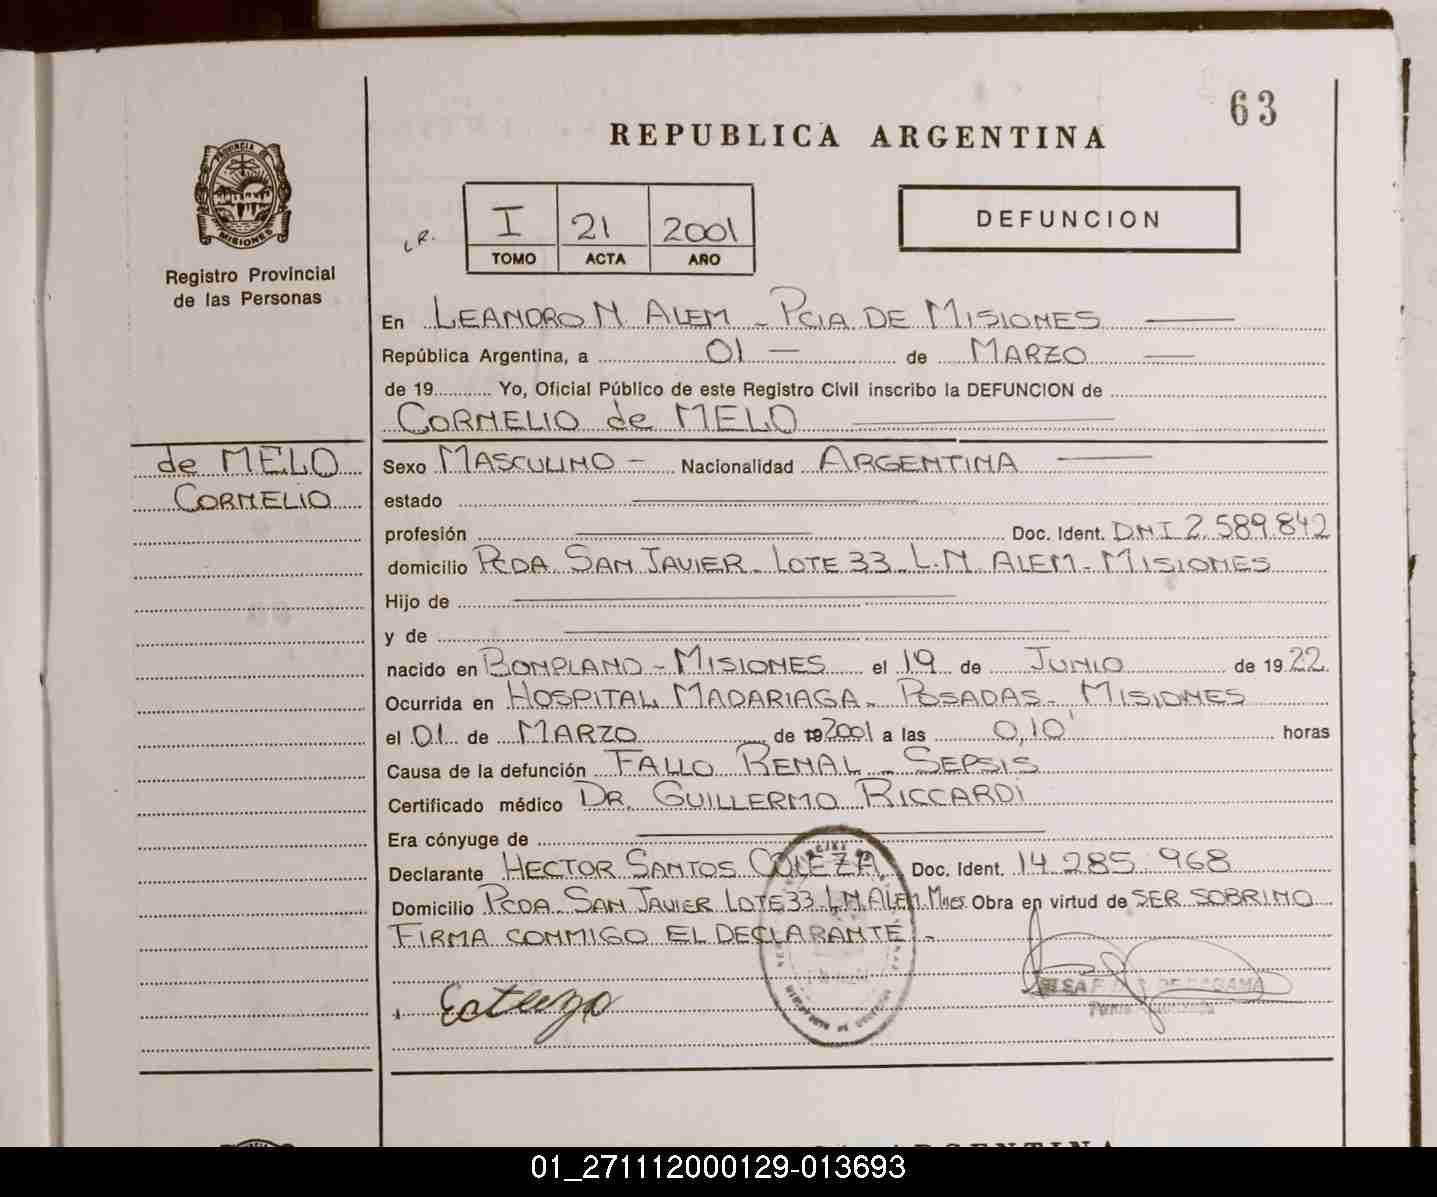 63
REPUBLICA ARGENTINA
PROVINCIA
MISIONES
Registro Provincial
de las Personas
LR.
I 21 2001
TOMO ACTA AÑO
DEFUNCION
En LEANDRO N ALEM - PCIA DE MISIONES
República Argentina, a 01 - de MARZO
de 19 Yo, Oficial Público de este Registro Civil inscribo la DEFUNCION de
CORNELIO de MELO
de MELO
CORNELIO
Sexo MASCULINO - Nacionalidad ARGENTINA
estado
profesión Doc. Ident. DNI 2.589.842
domicilio PCDA. SAN JAVIER - LOTE 33 - L.N. ALEM - MISIONES
Hijo de
y de
nacido en BONPLAND - MISIONES el 19 de JUNIO de 19 22
Ocurrida en HOSPITAL MADARIAGA - POSADAS - MISIONES
el 01 de MARZO de 19 2001 a las 0,10' horas
Causa de la defunción FALLO RENAL - SEPSIS
Certificado médico DR. GUILLERMO RICCARDI
Era cónyuge de
Declarante HECTOR SANTOS Doc. Ident. 14.285.968
Domicilio PCDA. SAN JAVIER LOTE 33 - L.N. ALEM. Mnes. Obra en virtud de SER SOBRINO
FIRMA CONMIGO EL DECLARANTE -
01_271112000129-013693